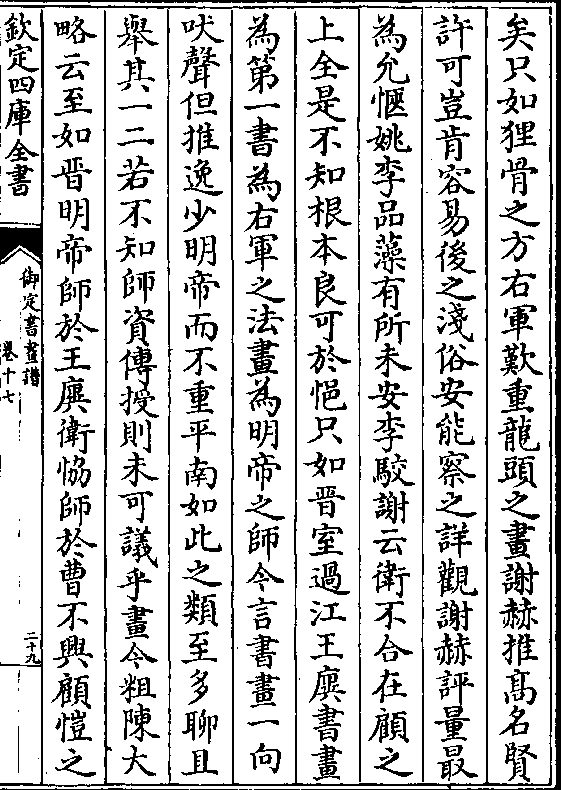 矣只如狸骨之方右軍歎重龍頭之畫謝赫推髙名賢
許可豈肯容易後之淺俗安能察之詳觀謝赫評量最
為允愜姚李品藻有所未安李駮謝云衛不合在顧之
上全是不知根本良可於悒只如晋室過江王廙書畫
為第一書為右軍之法畫為明帝之師今言書畫一向
吠聲但推逸少明帝而不重平南如此之類至多聊且
舉其一二若不知師資傳授則未可議乎畫今粗陳大
略云至如晋明帝師於王廙衛恊師於曹不興顧愷之
欽定四庫全書
御定書畫譜
卷十七
二十九